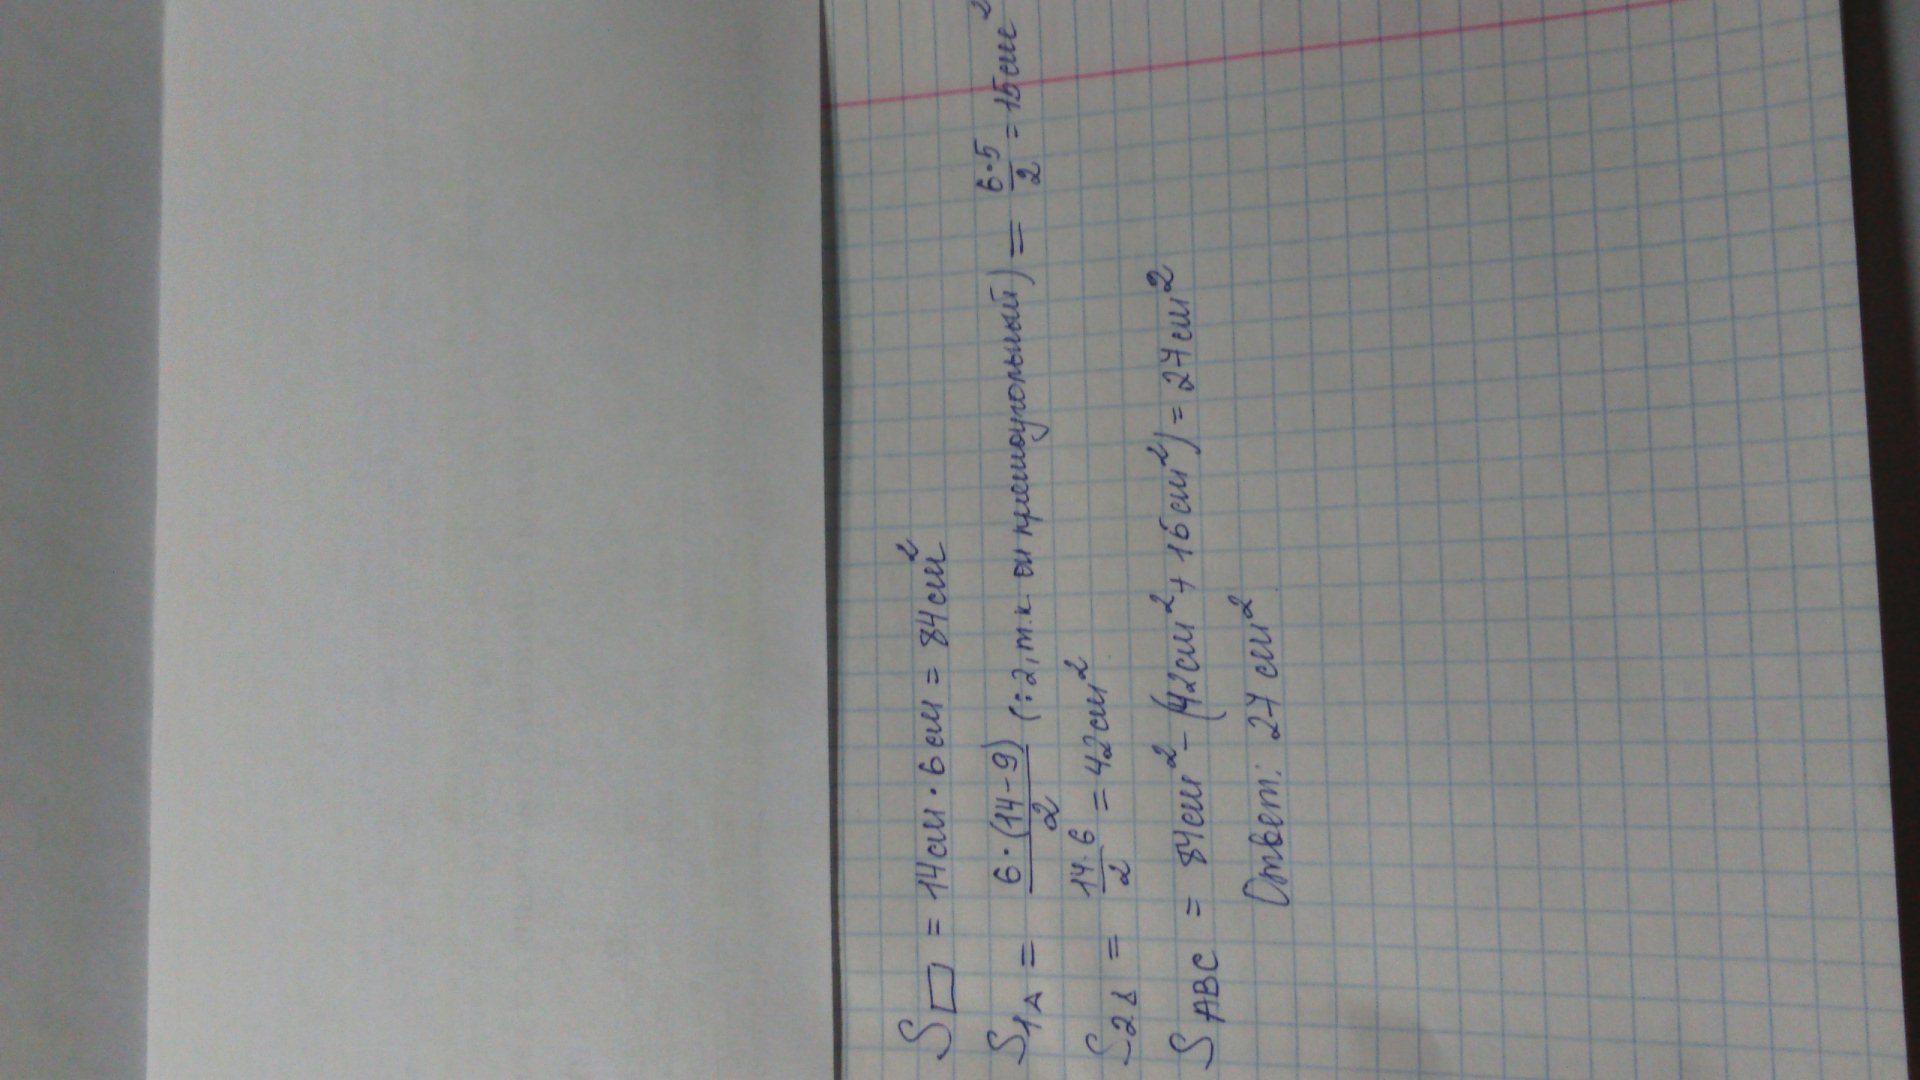 S▭ = 14см · 6см = 84см²
S₁△ = 6·(14-9)/2 (:2, т.к. он прямоугольный) = 6·5/2 = 15см²
S₂△ = 14·6/2 = 42см²
S ABC = 84см² - (42см² + 15см²) = 27см²
Ответ: 27см²